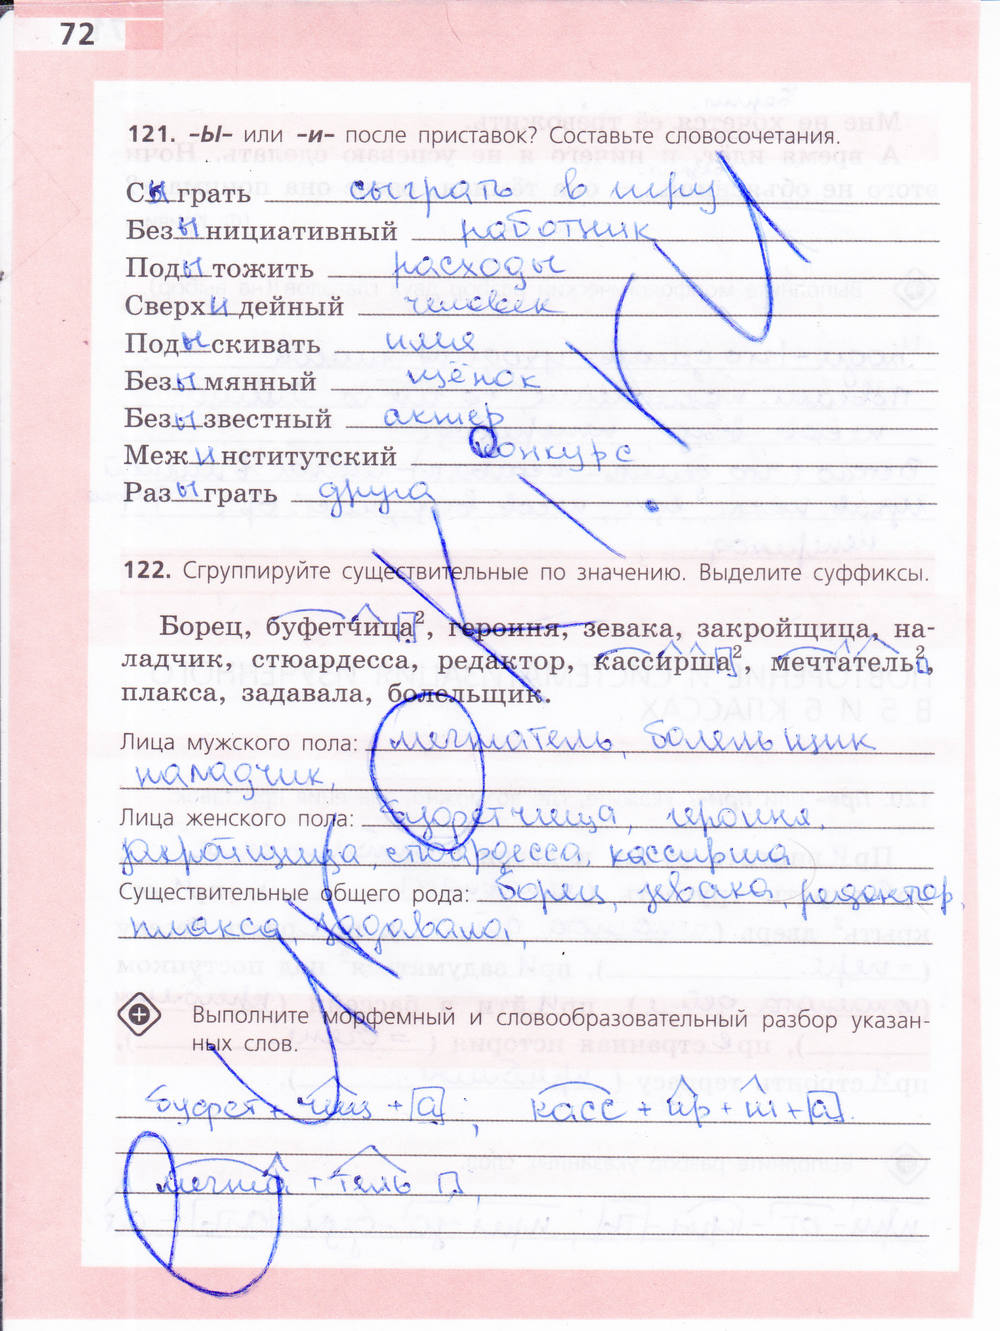 72
121. -Ы- или -и- после приставок? Составьте словосочетания.
Сыграть сыграть в игру
Безынициативный работник
Подытожить расходы
Сверхидейный человек
Подыскивать имя
Безымянный щенок
Безызвестный актер
Межинститутский конкурс
Разыграть друга
122. Сгруппируйте существительные по значению. Выделите суффиксы.
Борец, буфетчица², героиня, зевака, закройщица, на-
ладчик, стюардесса, редактор, кассирша², мечтатель²,
плакса, задавала, болельщик.
Лица мужского пола: мечтатель, болельщик
наладчик,
Лица женского пола: буфетчица, героиня,
закройщица, стюардесса, кассирша
Существительные общего рода: борец, зевака, редактор,
плакса, задавала,
Выполните морфемный и словообразовательный разбор указан-
ных слов.
буфет + чиц + а ; касс + ир + ш + а.
мечта + тель ,